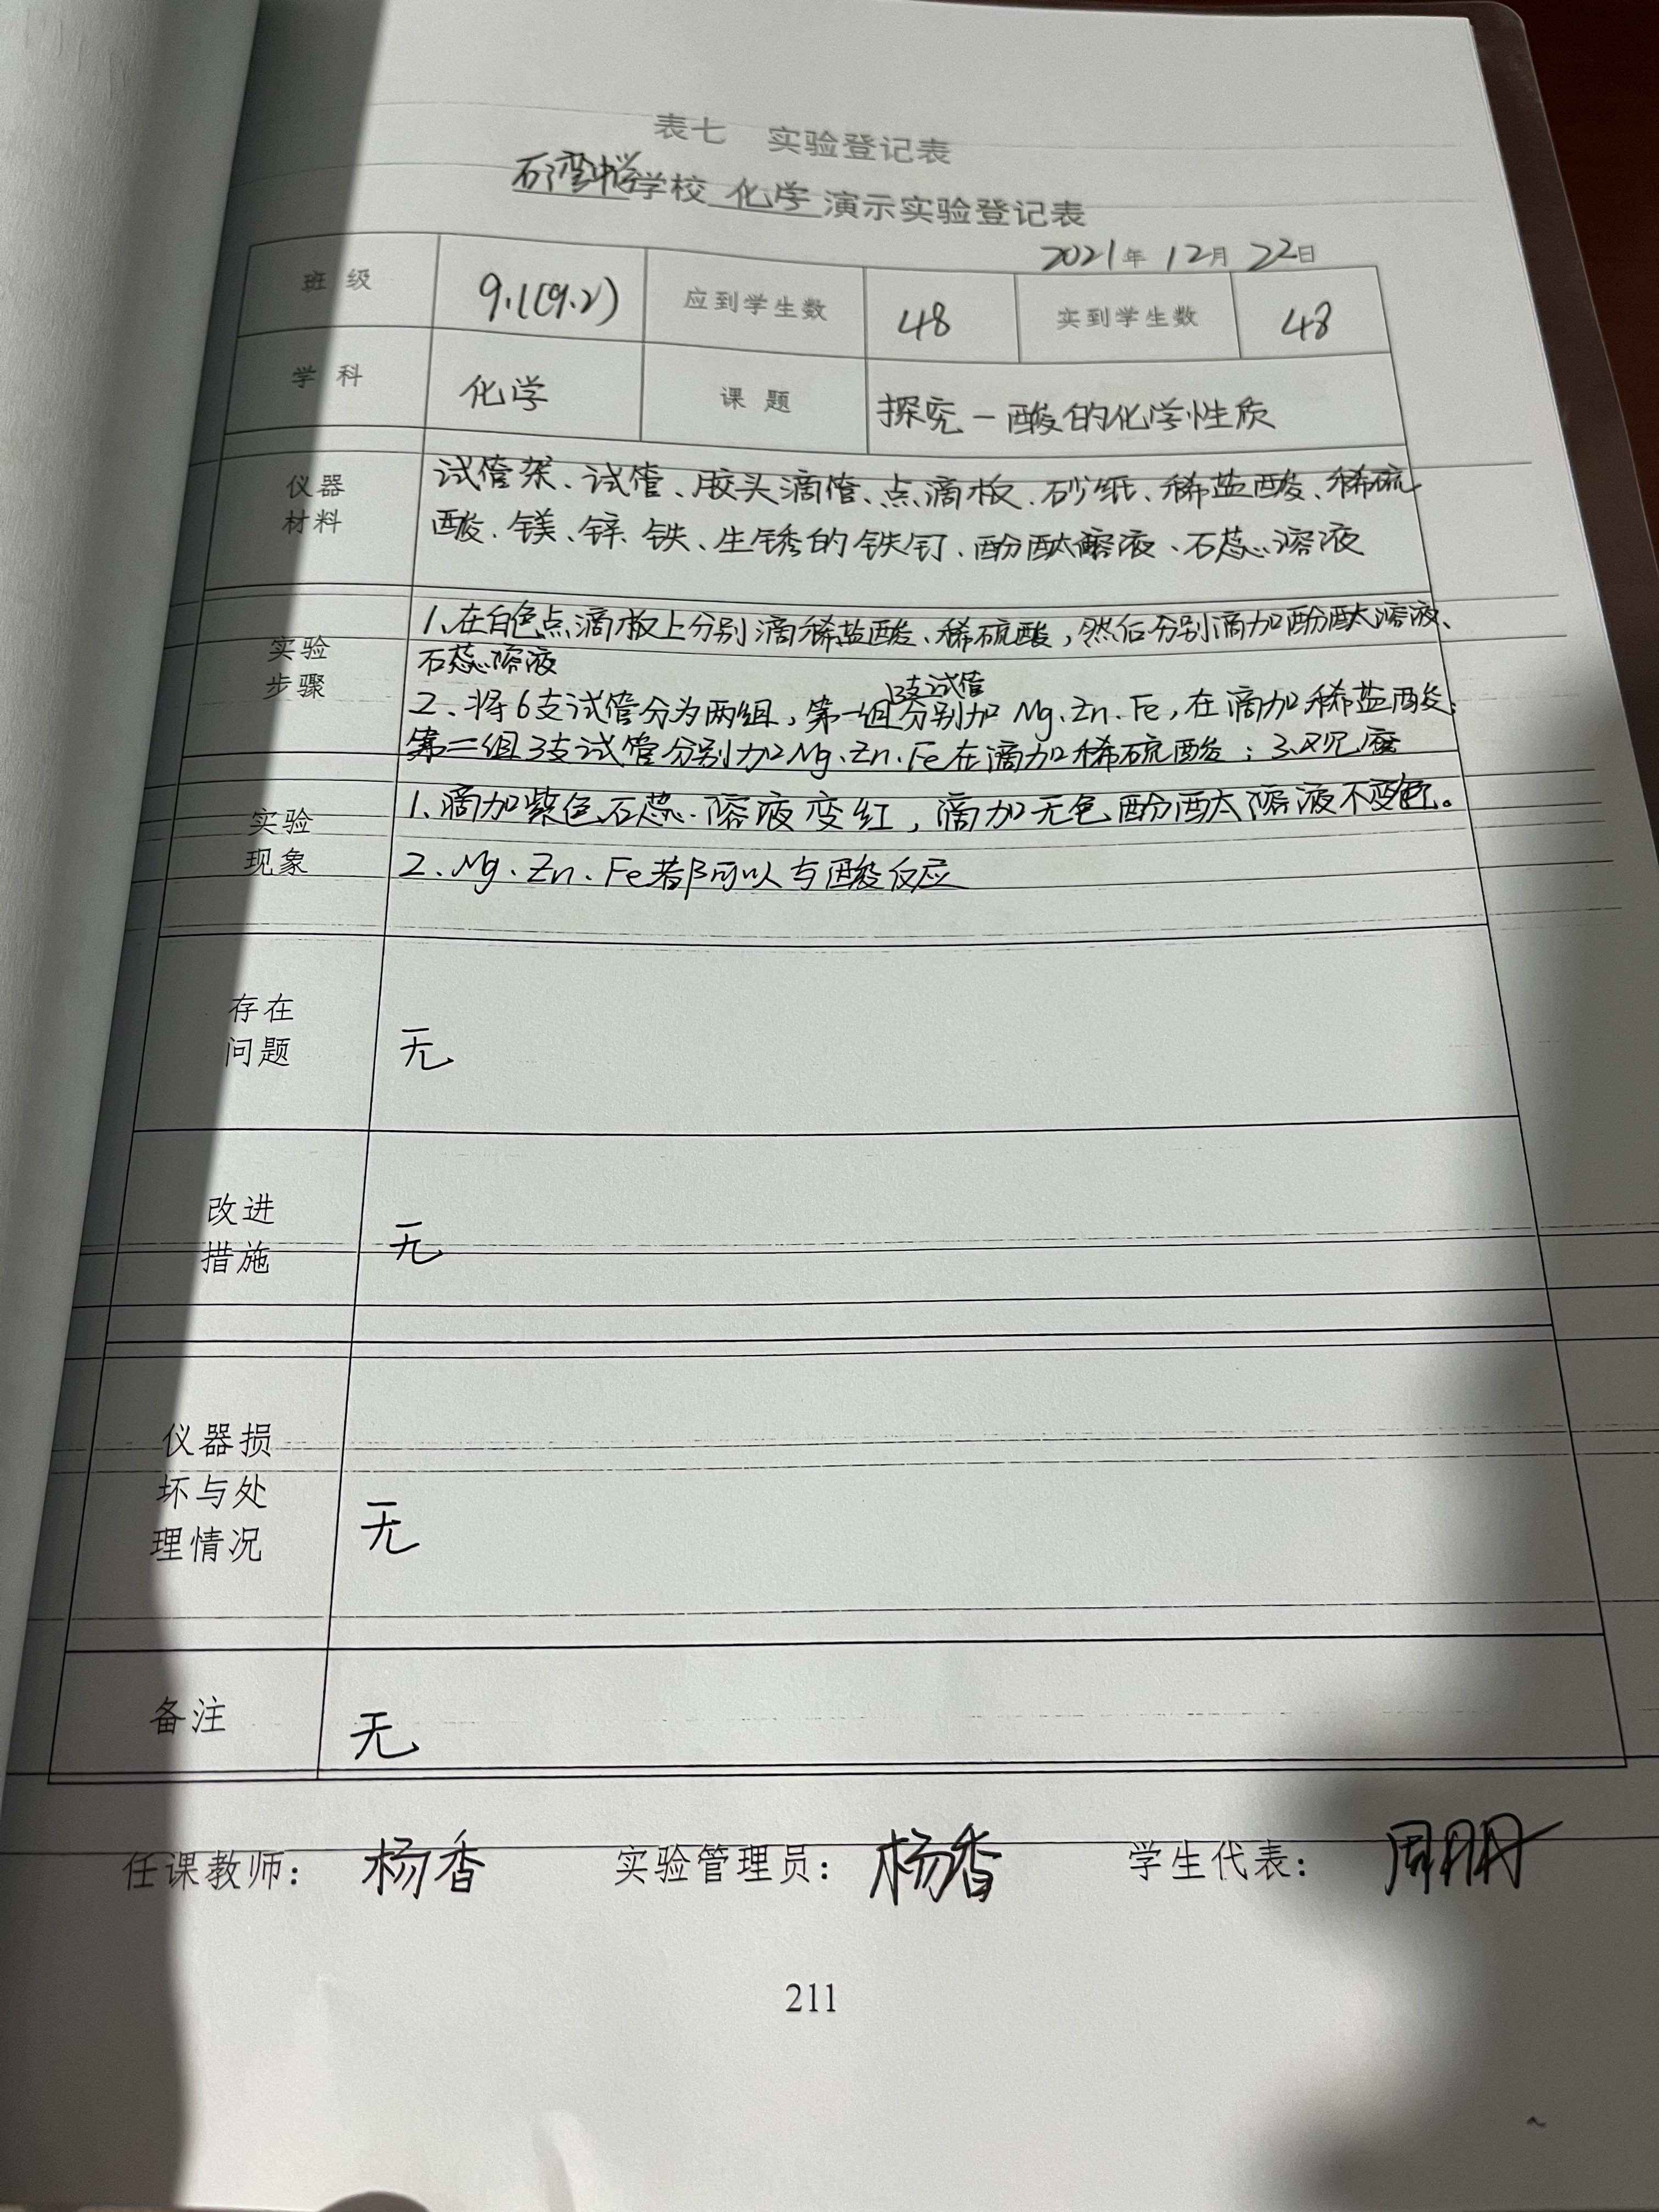 表七 实验登记表
石湾中学学校 化学 演示实验登记表
2021年 12月 22日
班 级 9.1(9.2) 应到学生数 48 实到学生数 48
学 科 化学 课 题 探究一酸的化学性质
仪器
材料
试管架、试管、胶头滴管、点滴板、砂纸、稀盐酸、稀硫
酸、镁、锌、铁、生锈的铁钉、酚酞溶液、石蕊溶液
实验
步骤
1、在白色点滴板上分别滴稀盐酸、稀硫酸，然后分别滴加酚酞溶液、
石蕊溶液
3支试管
2、将6支试管分为两组，第一组分别加 Mg、Zn、Fe，在滴加稀盐酸；
第二组3支试管分别加Mg、Zn、Fe在滴加稀硫酸；3、
实验
现象
1、滴加紫色石蕊溶液变红，滴加无色酚酞溶液不变色。
2、Mg、Zn、Fe都可以与酸反应
存在
问题
无
改进
措施
无
仪器损
坏与处
理情况
无
备注
无
任课教师： 杨香 实验管理员： 杨香 学生代表： 周
211